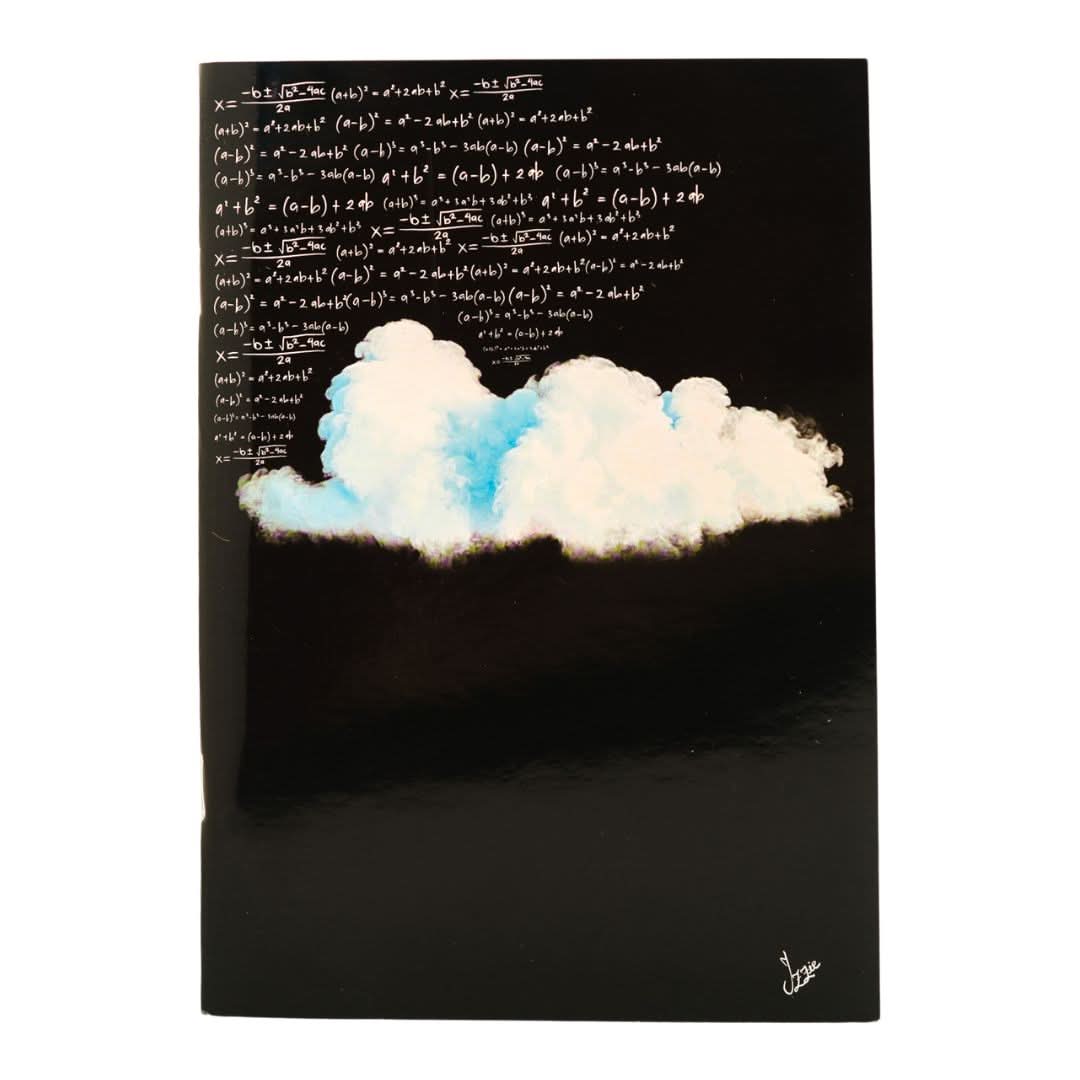 x= -b ± √b²-4ac / 2a (a+b)² = a²+2ab+b² x= -b ± √b²-4ac / 2a
(a+b)² = a²+2ab+b² (a-b)² = a² - 2 ab+b² (a+b)² = a²+2ab+b²
(a-b)² = a² - 2 ab+b² (a-b)³ = a³-b³ - 3ab(a-b) (a-b)² = a² - 2 ab+b²
(a-b)³ = a³-b³ - 3ab(a-b) a²+b² = (a-b) + 2 ab (a-b)³ = a³-b³ - 3ab(a-b)
a²+b² = (a-b) + 2 ab (a+b)³ = a³+3a²b+3ab²+b³ a²+b² = (a-b) + 2 ab
(a+b)³ = a³+3a²b+3ab²+b³ x= -b ± √b²-4ac / 2a (a+b)³ = a³+3a²b+3ab²+b³
x= -b ± √b²-4ac / 2a (a+b)² = a²+2ab+b² x= -b ± √b²-4ac / 2a (a+b)² = a²+2ab+b²
(a+b)² = a²+2ab+b² (a-b)² = a² - 2 ab+b² (a+b)² = a²+2ab+b² (a-b)² = a² - 2 ab+b²
(a-b)² = a² - 2 ab+b² (a-b)³ = a³-b³ - 3ab(a-b) (a-b)² = a² - 2 ab+b²
(a-b)³ = a³-b³ - 3ab(a-b)
(a-b)³ = a³-b³ - 3ab(a-b)
a²+b² = (a-b) + 2 ab
x= -b ± √b²-4ac / 2a
(a+b)² = a²+2ab+b²
(a-b)² = a² - 2 ab+b²
(a-b)³ = a³-b³ - 3ab(a-b)
a²+b² = (a-b) + 2 ab
x= -b ± √b²-4ac / 2a
Izzie